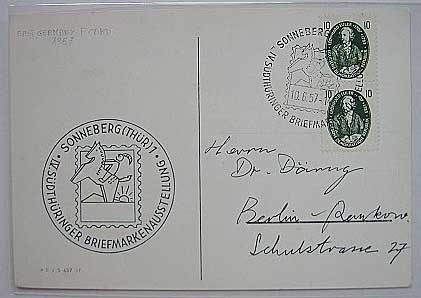 EAST GERMANY P CARD
1957
SONNEBERG(THÜR)1
IV. SÜDTHÜRINGER BRIEFMARKENAUSSTELLUNG
SONNEBERG
IV. SÜDTHÜRINGER BRIEFMARKENAUSSTELLUNG
10.6.57
10 10
10 10
Herrn
Dr. Döring
Berlin-Pankow
Schulstrasse 27